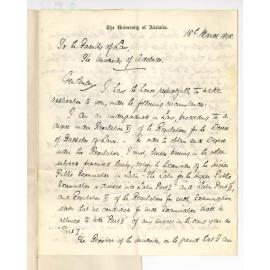 The University of Adelaide.
To the Faculty of Law,
The University of Adelaide.
Gentlemen,
I have the honor respectfully to make
application to you, under the following circumstances:
I am an undergraduate in Law, proceeding to a
degree under Regulation of the Regulations for the Degree
of Bachelor of Laws. In order to obtain such Degree
under the Regulations I must, besides passing in the other
subjects prescribed thereby, satisfy the Examiners of the Higher
Public Examination in Latin. The Latin for the Higher Public
Examination is divided into Latin Part I and Latin Part II,
and Regulation of the Regulations for such Examination
states that no candidate for such Examination shall be
allowed to take Part II of any subject in the same year as
Part I.
The Registrar of the University, on the ground that I am